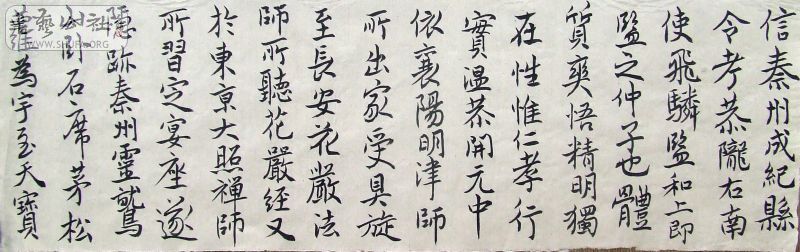 信秦州成紀縣
令考恭隴右南
使飛驎監和上即
監之仲子也體
質爽悟精明獨
在性惟仁孝行
實溫恭開元中
依襄陽明津師
所出家受具旋
至長安花嚴法
師所聽花嚴經又
於東京大照禪師
所習定宴座遂
隱跡秦州靈鷲
谷卧石席茅松
蘿為宇至天寶
SHUFA.ORG